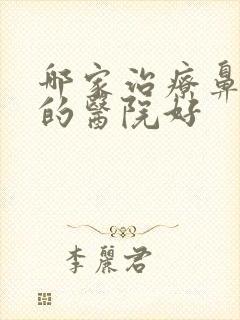 哪家治療鼻
的醫院好
李麗君